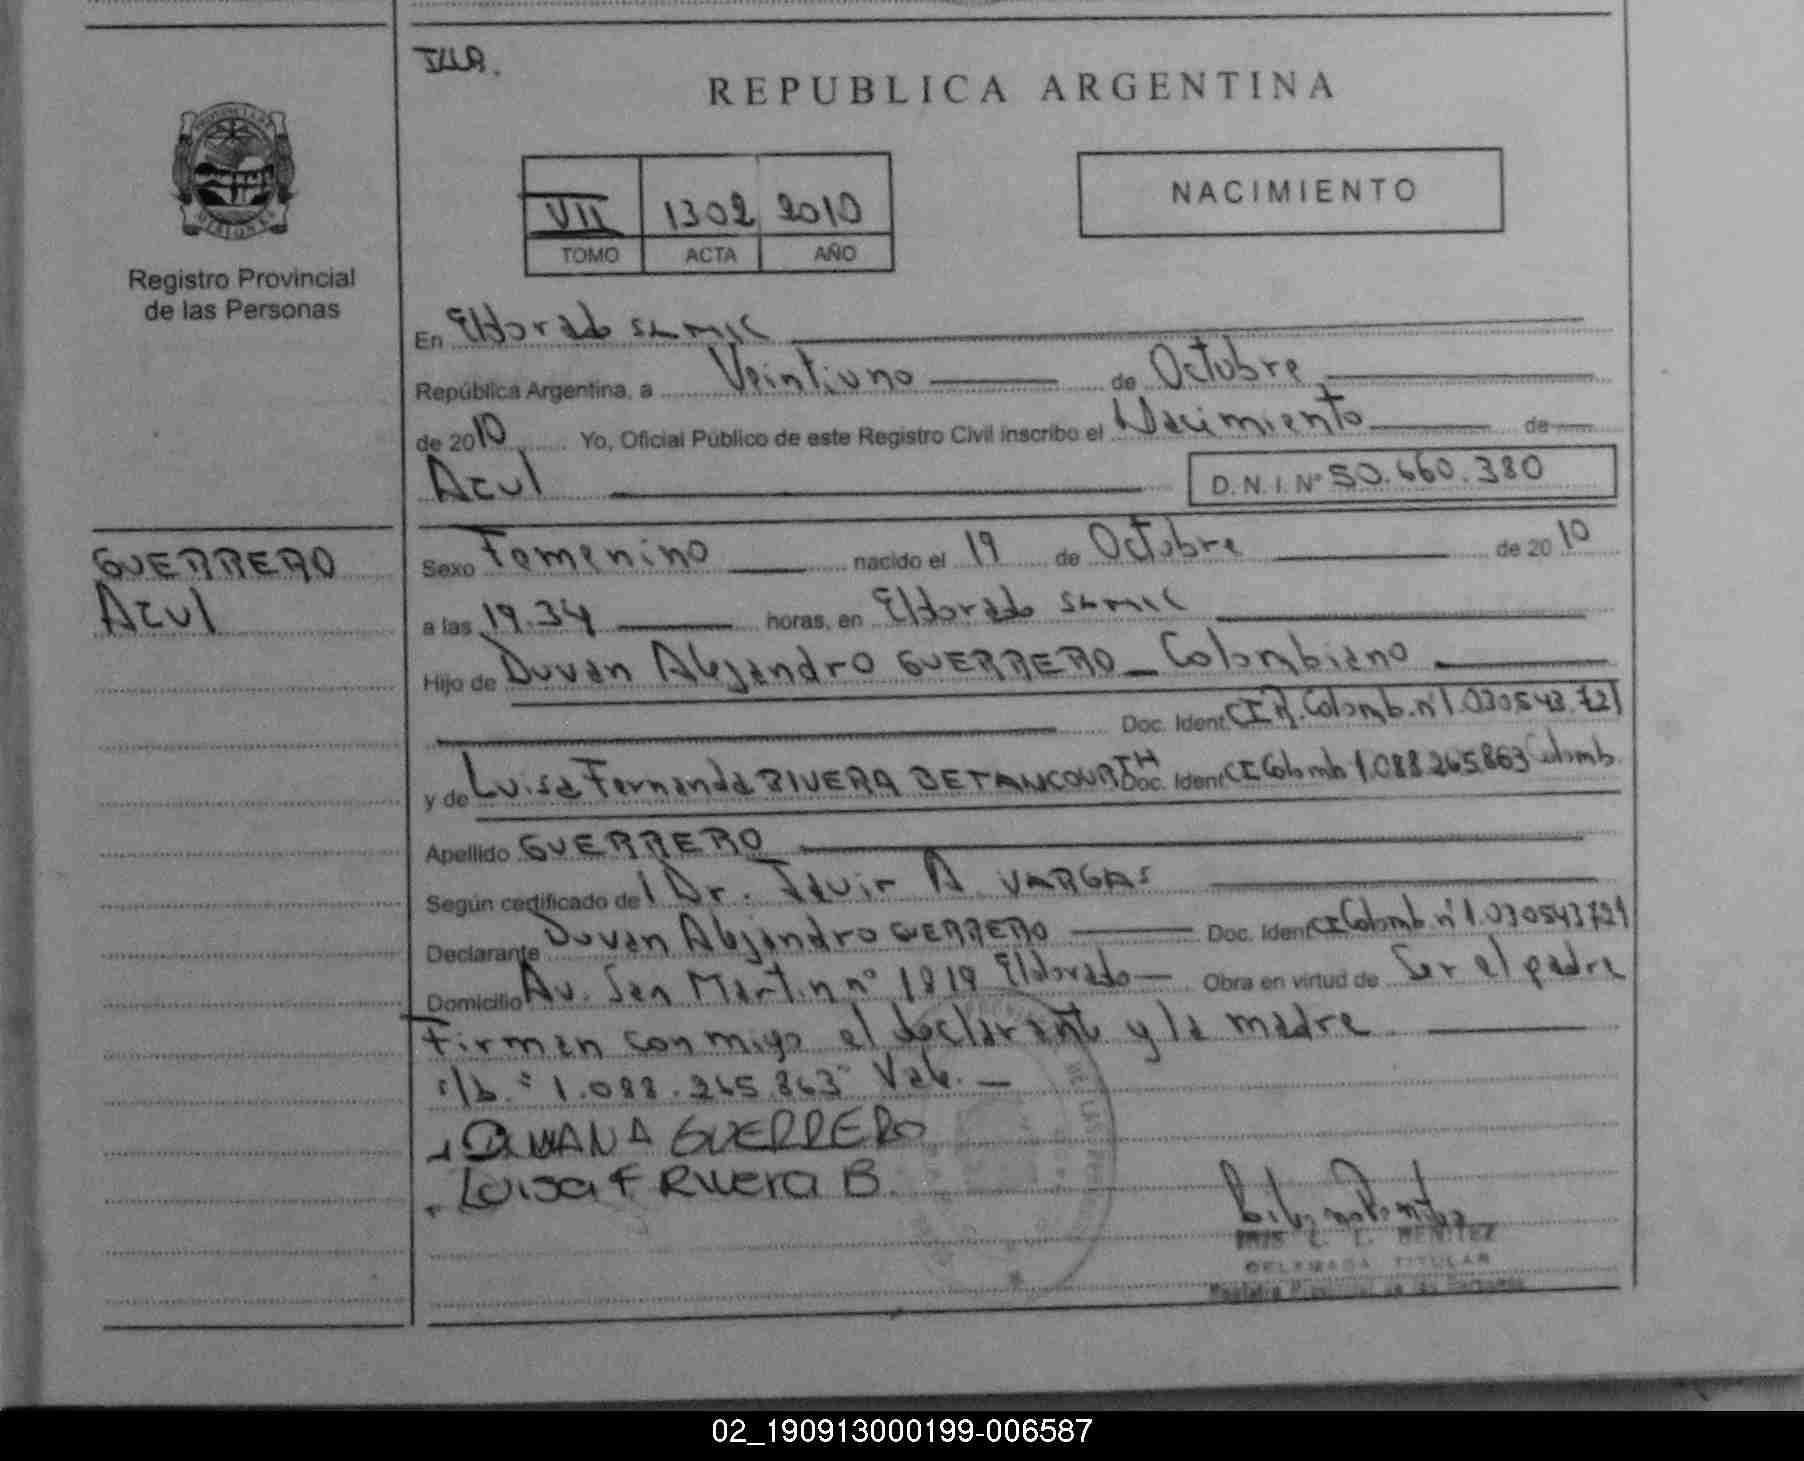 REPUBLICA ARGENTINA
NACIMIENTO
VII 1302 2010
TOMO ACTA AÑO
Registro Provincial
de las Personas
En Eldorado SAMIC
República Argentina, a Veintiuno de Octubre
de 2010 Yo, Oficial Público de este Registro Civil inscribo el Nacimiento de
Azul D. N. I. Nº 50.660.380
GUERRERO
Azul
Sexo Femenino nacido el 19 de Octubre de 2010
a las 19.34 horas, en Eldorado SAMIC
Hijo de Duvan Alejandro GUERRERO _ Colombiano
Doc. Ident CI R. Colomb. nº 1.030543.721
y de Luisa Fernanda RIVERA BETANCOURTH Doc. Ident CI Colomb 1.088.265.863 Colomb.
Apellido GUERRERO
Según certificado del Dr. Javir A VARGAS
Declarante Duvan Alejandro GUERRERO Doc. Ident CI Colomb. nº 1.030543721
Domicilio Av. San Martin nº 1819 Eldorado Obra en virtud de Ser el padre
Firman conmigo el declarante y la madre
s/b. "1.088.265.863" Vale. _
DUVAN A GUERRERO
Luisa F Rivera B.
L. BENITEZ
DELEGADA TITULAR
Registro Provincial de las Personas
02_190913000199-006587